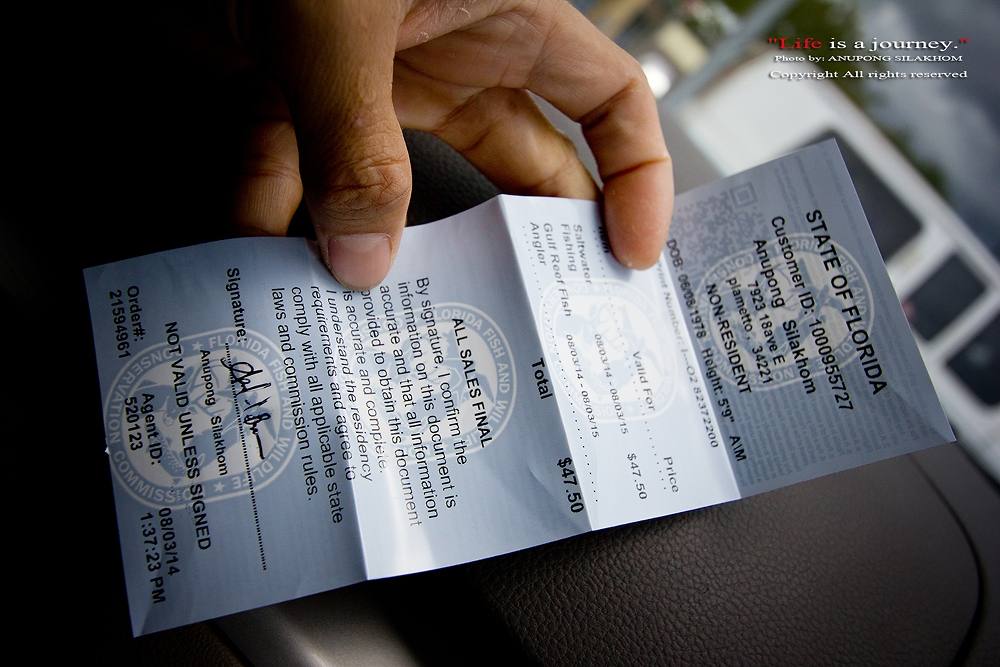 "Life is a journey."
Photo by: ANUPONG SILAKHOM
Copyright All rights reserved
STATE OF FLORIDA
Customer ID: 1000955727
Anupong Silakhom
7923 18ave E
planetto, , 34221
NON-RESIDENT
DOB: 06/08/1978 Height: 5'9" A/M
Number: 52372200
Valid For Price
Saltwater 08/03/14 - 08/03/15 $47.50
Fishing
Gulf Reef Fish 08/03/14 - 08/03/15
Angler
Total $47.50
ALL SALES FINAL
By signature, I confirm the
information on this document is
accurate and that all information
provided to obtain this document
is accurate and complete.
I understand the residency
requirements and agree to
comply with all applicable state
laws and commission rules.
Signature:
Anupong Silakhom
NOT VALID UNLESS SIGNED
Order#: Agent ID: 08/03/14
21594961 520123 1:37:23 PM
FLORIDA FISH AND WILDLIFE
CONSERVATION COMMISSION